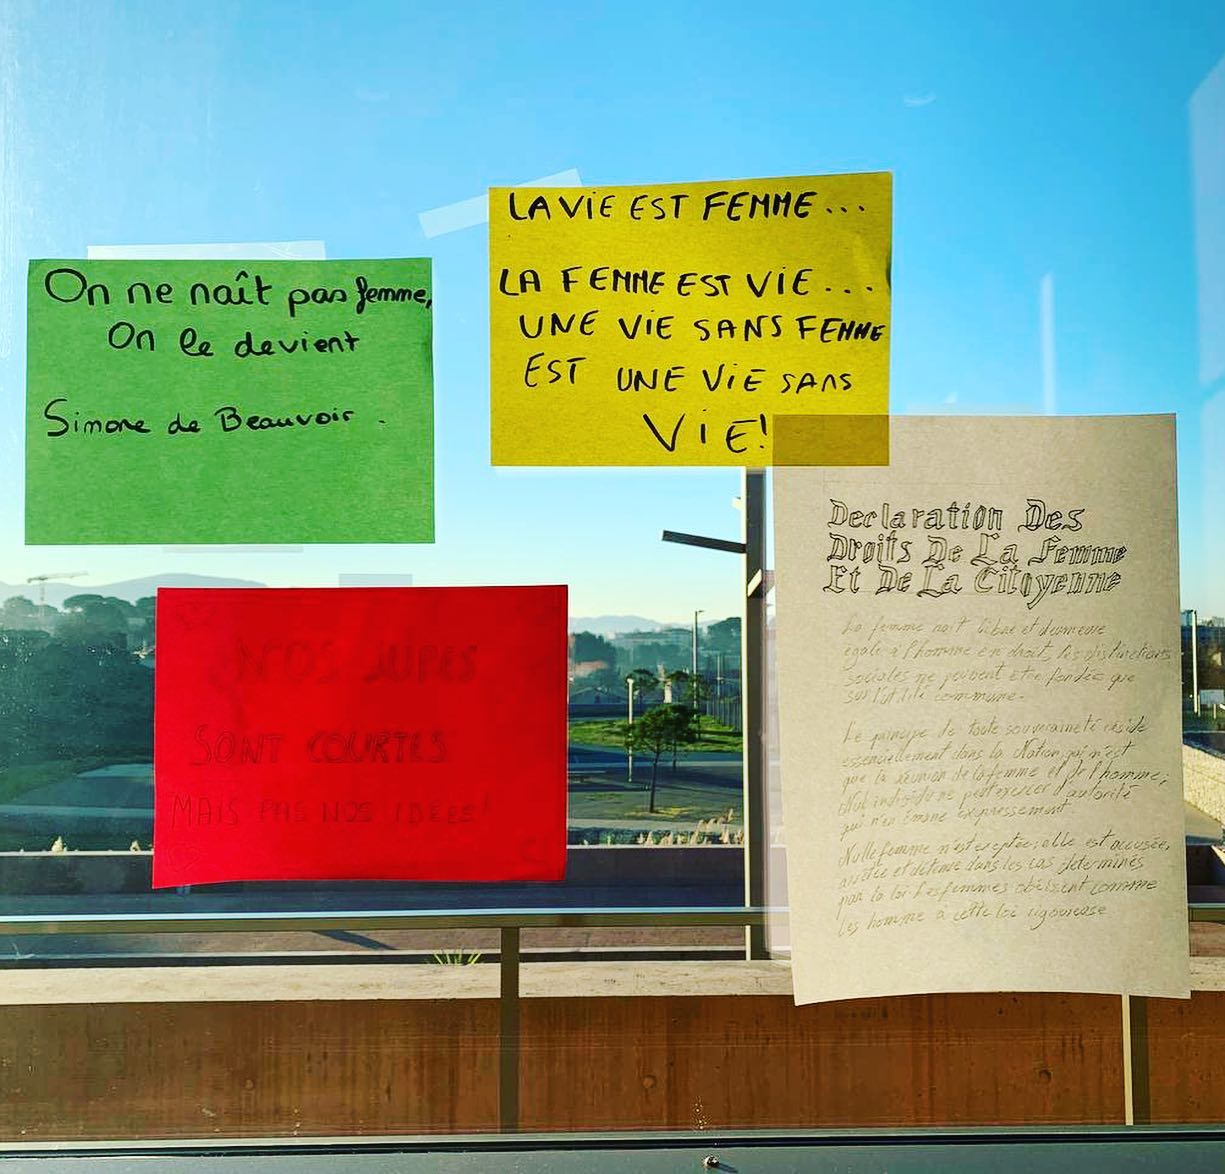 On ne naît pas femme,
On le devient
Simone de Beauvoir.
LA ViE EST FEMME...
LA FEMME EST ViE...
UNE ViE SANS FEMME
EST UNE ViE SANS
ViE!
NOS JUPES
SONT COURTES
MAIS PAS NOS IDÉES!
Declaration Des
Droits De La Femme
Et De La Citoyenne
La femme nait libre et demeure
égale à l'homme en droit, les distinctions
sociales ne peuvent etre fondée que
sur l'utilité commune.
Le principe de toute souveraineté réside
essenciellement dans la Nation, qui n'est
que la réunion de la femme et de l'homme;
Nul individu ne peut exercer d'autorité
qui n'en émane expressement.
Nulle femme n'est exceptée; elle est accusée,
arretée et détenue dans les cas determinés
par la loi Les femmes obéissent comme
les homme à cette loi rigoureuse